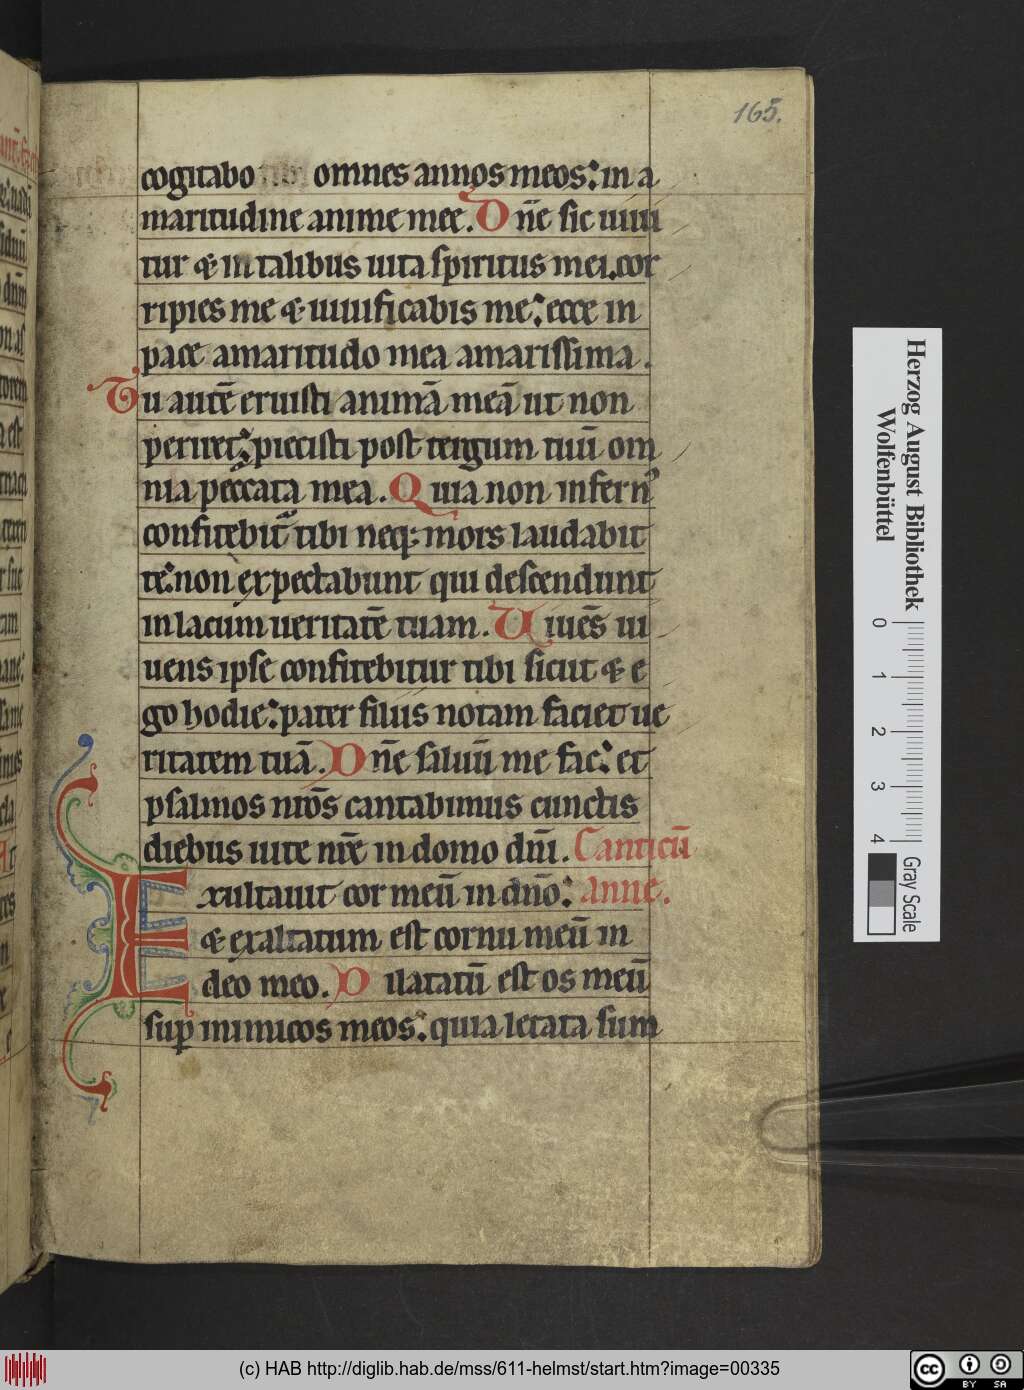 165.
cogitabo omnes annos meos: in a
maritudine anime mee. Dn̄e sic uiui
tur & in talibus uita spiritus mei. cor
ripies me & uiuificabis me: ecce in
pace amaritudo mea amarissima.
Tu autē eruisti animā meā ut non
periret: piecisti post tergum tuū om
nia peccata mea. Quia non infern᷒
confitebit᷑ tibi neq; mors laudabit
te: non expectabunt qui descendunt
in lacum ueritatē tuam. Uiuēs ui
uens ipse confitebitur tibi sicut & e
go hodie: pater filiis notam faciet ue
ritatem tuā. Dn̄e saluū me fac: et
psalmos nr̄os cantabimus cunctis
diebus uite nr̄e in domo dn̄i. Canticū
Exultauit cor meū in dn̄o: Anne.
& exaltatum est cornu meū in
deo meo. Dilatatū est os meū
sup̄ inimicos meos: quia letata sum
Herzog August Bibliothek
Wolfenbüttel
0 1 2 3 4
Gray Scale
(c) HAB http://diglib.hab.de/mss/611-helmst/start.htm?image=00335
cc BY SA